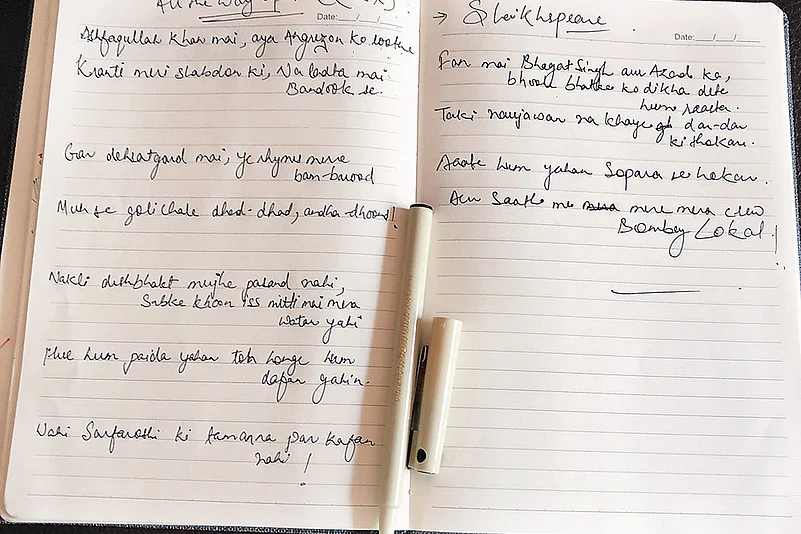 All the way up
Date:__/__/__
Ashfaqullah Khan mai, aya Angrezon ko lootne
Kranti meri shabdon ki, Na ladta mai
Bandook se.
Gar dehsatgard mai, ye rhymes mere
bam-barood
Muh se goli chale dhad-dhad, andha-dhoond!
Nakli deshbhakt mujhe pasand nahi,
Sabke khoon iss mitti mai mera
watan yahi
Hue hum paida yahan toh honge hum
dafan yahin.
Wahi Sarfaroshi ki tamanna par kafan
nahi!
→ Sheikhspeare
Date:__/__/__
Fan mai Bhagat Singh aur Azad ka,
bhoole bhatke ko dikha dete
hum raasta.
Taki naujawan na khaye dar-dar
ki thokar.
Aaate hum yahan Sopara se hokar.
Aur Saath me mere mera crew
Bombay Lokal!